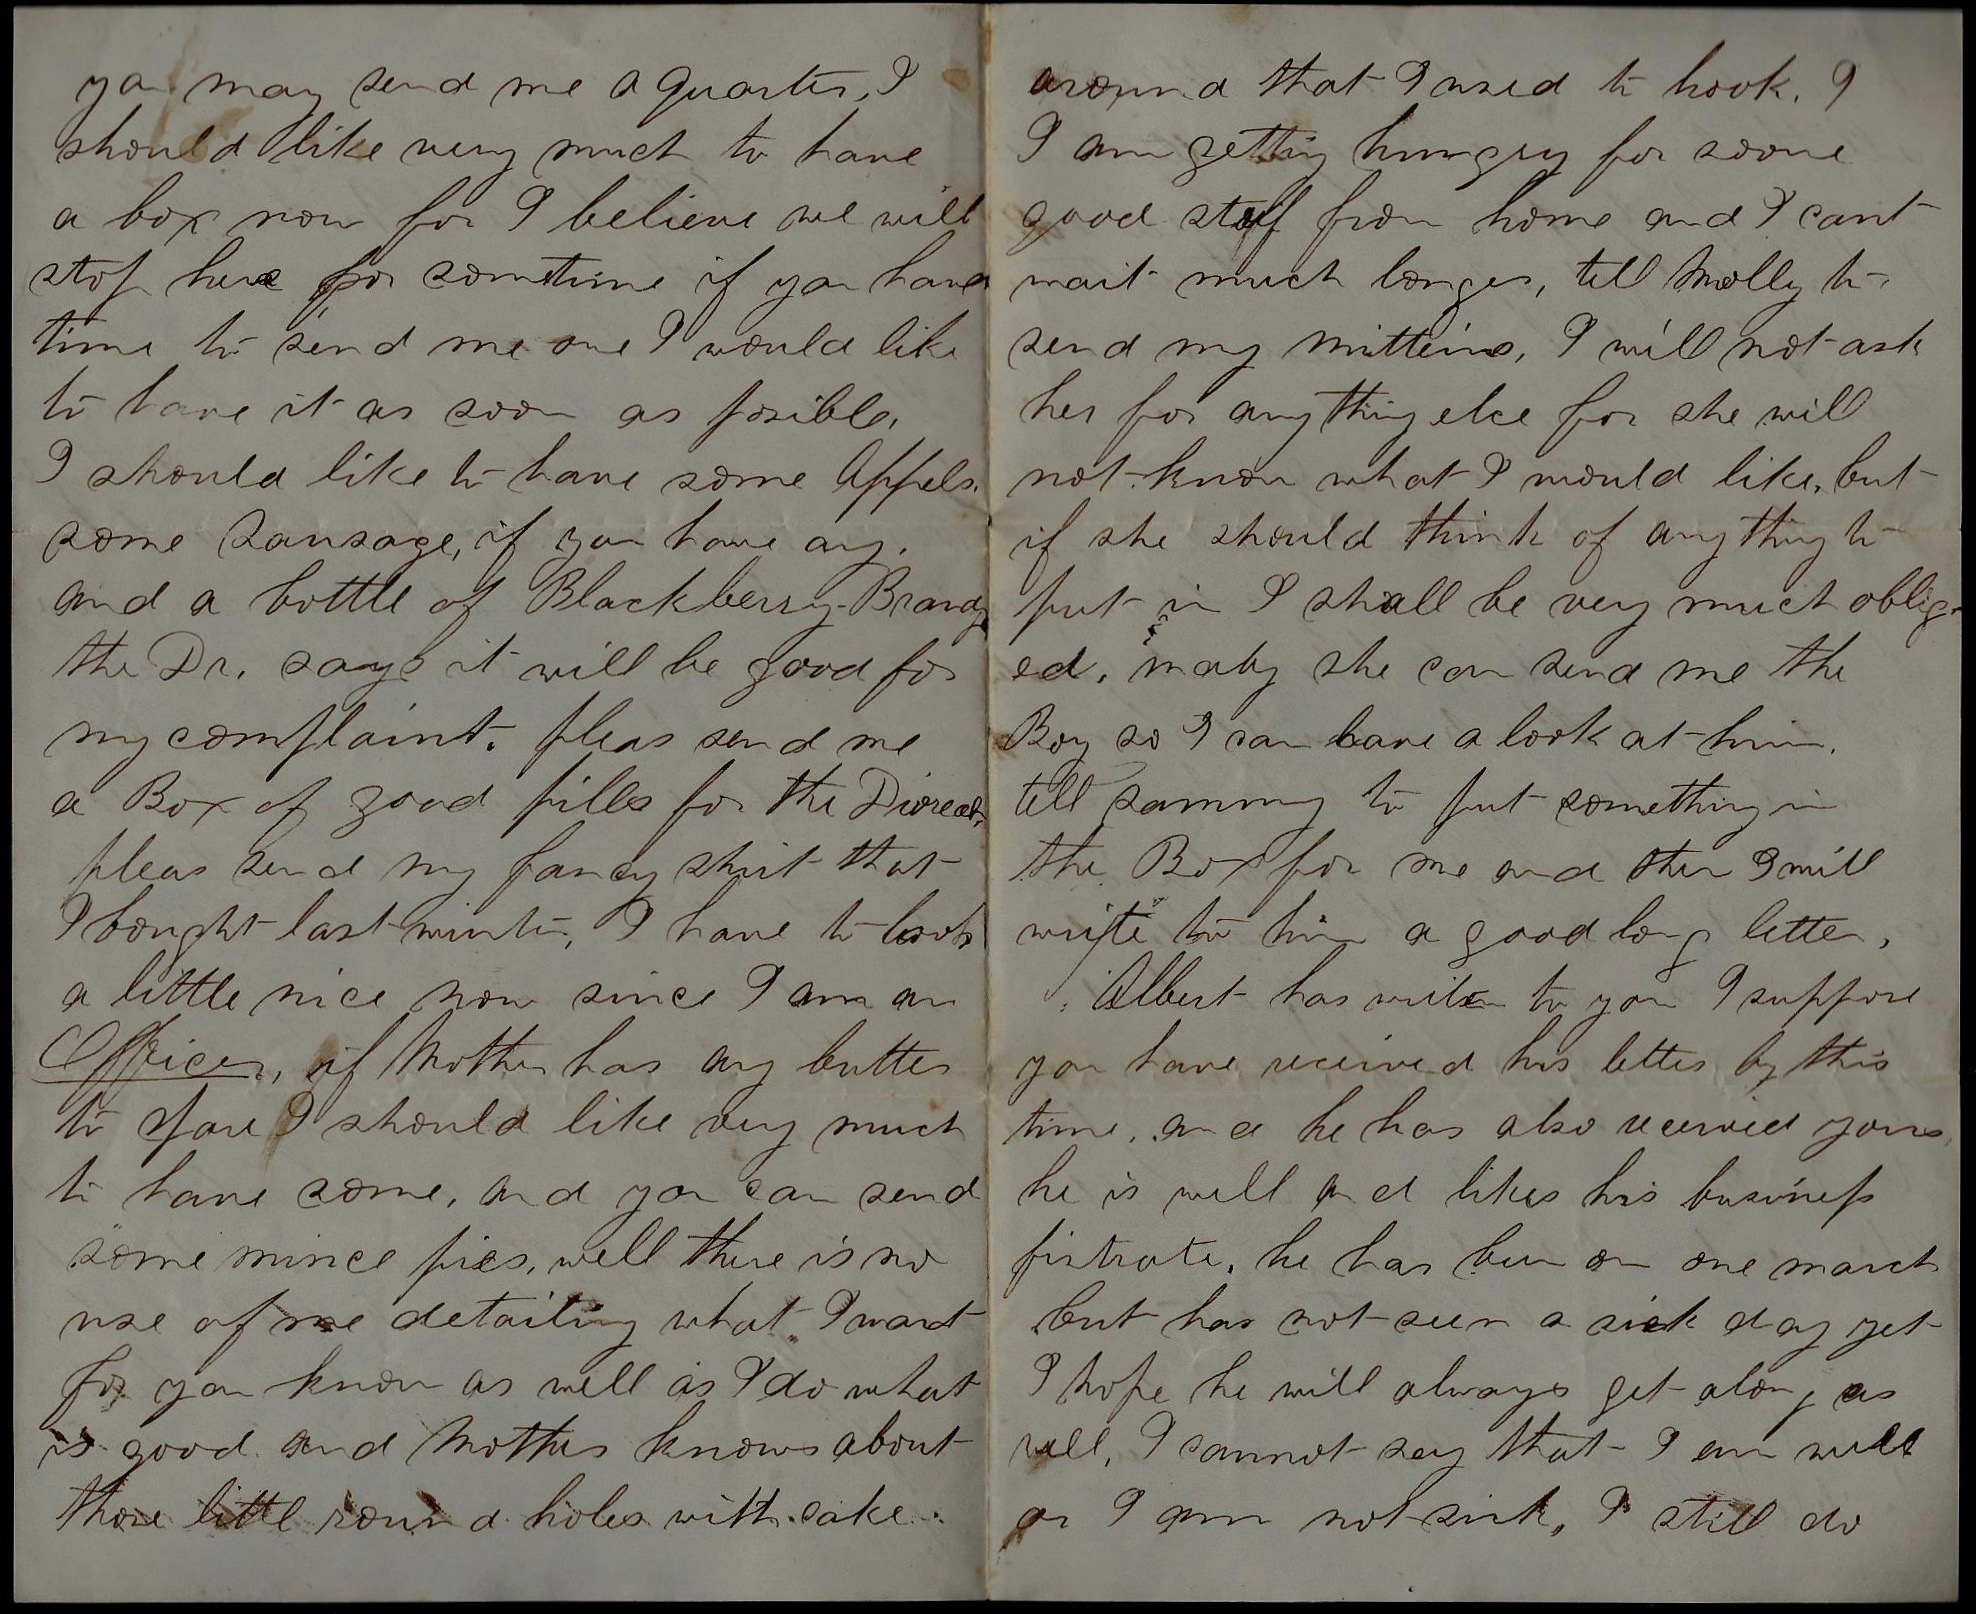 you may send me a quarter, I
should like very much to have
a box now for I believe we will
stop here for sometime if you have
time to send me one I would like
to have it as soon as posible.
I should like to have some Appels.
some Sausage, if you have any.
and a bottle of Blackberry-Brandy
the Dr. says it will be good for
my complaint. pleas send me
a Box of good pills for the
pleas send my fancy shirt that
I bought last winter, I have to look
a little nice now since I am an
Officer, if Mother has any butter
to spare I should like very much
to have some, and you can send
some mince pies, well there is no
use of me detailing what I want
for you know as well as I do what
is good and Mother knows about
those littl round holes with cake.
around that I used to hook. I
I am getting hungry for some
good stuf from home and I cant
wait much longer, tell Molly to
send my mittens, I will not ask
her for anything else for she will
not know what I would like, but
if she should think of any thing to
put in I shall be very much oblig-
ed, maby she can send me the
Boy so I can have a look at him.
tell Sammy to put something in
the Box for me and then I will
write to him a good long letter,
Albert has writen to you I suppose
you have received his letter by this
time, and he has also received yours,
he is well and likes his business
firstrate, he has been on one march
but has not seen a sick day yet
I hope he will always get along as
well, I cannot say that I am well
or I am not sick, I still do